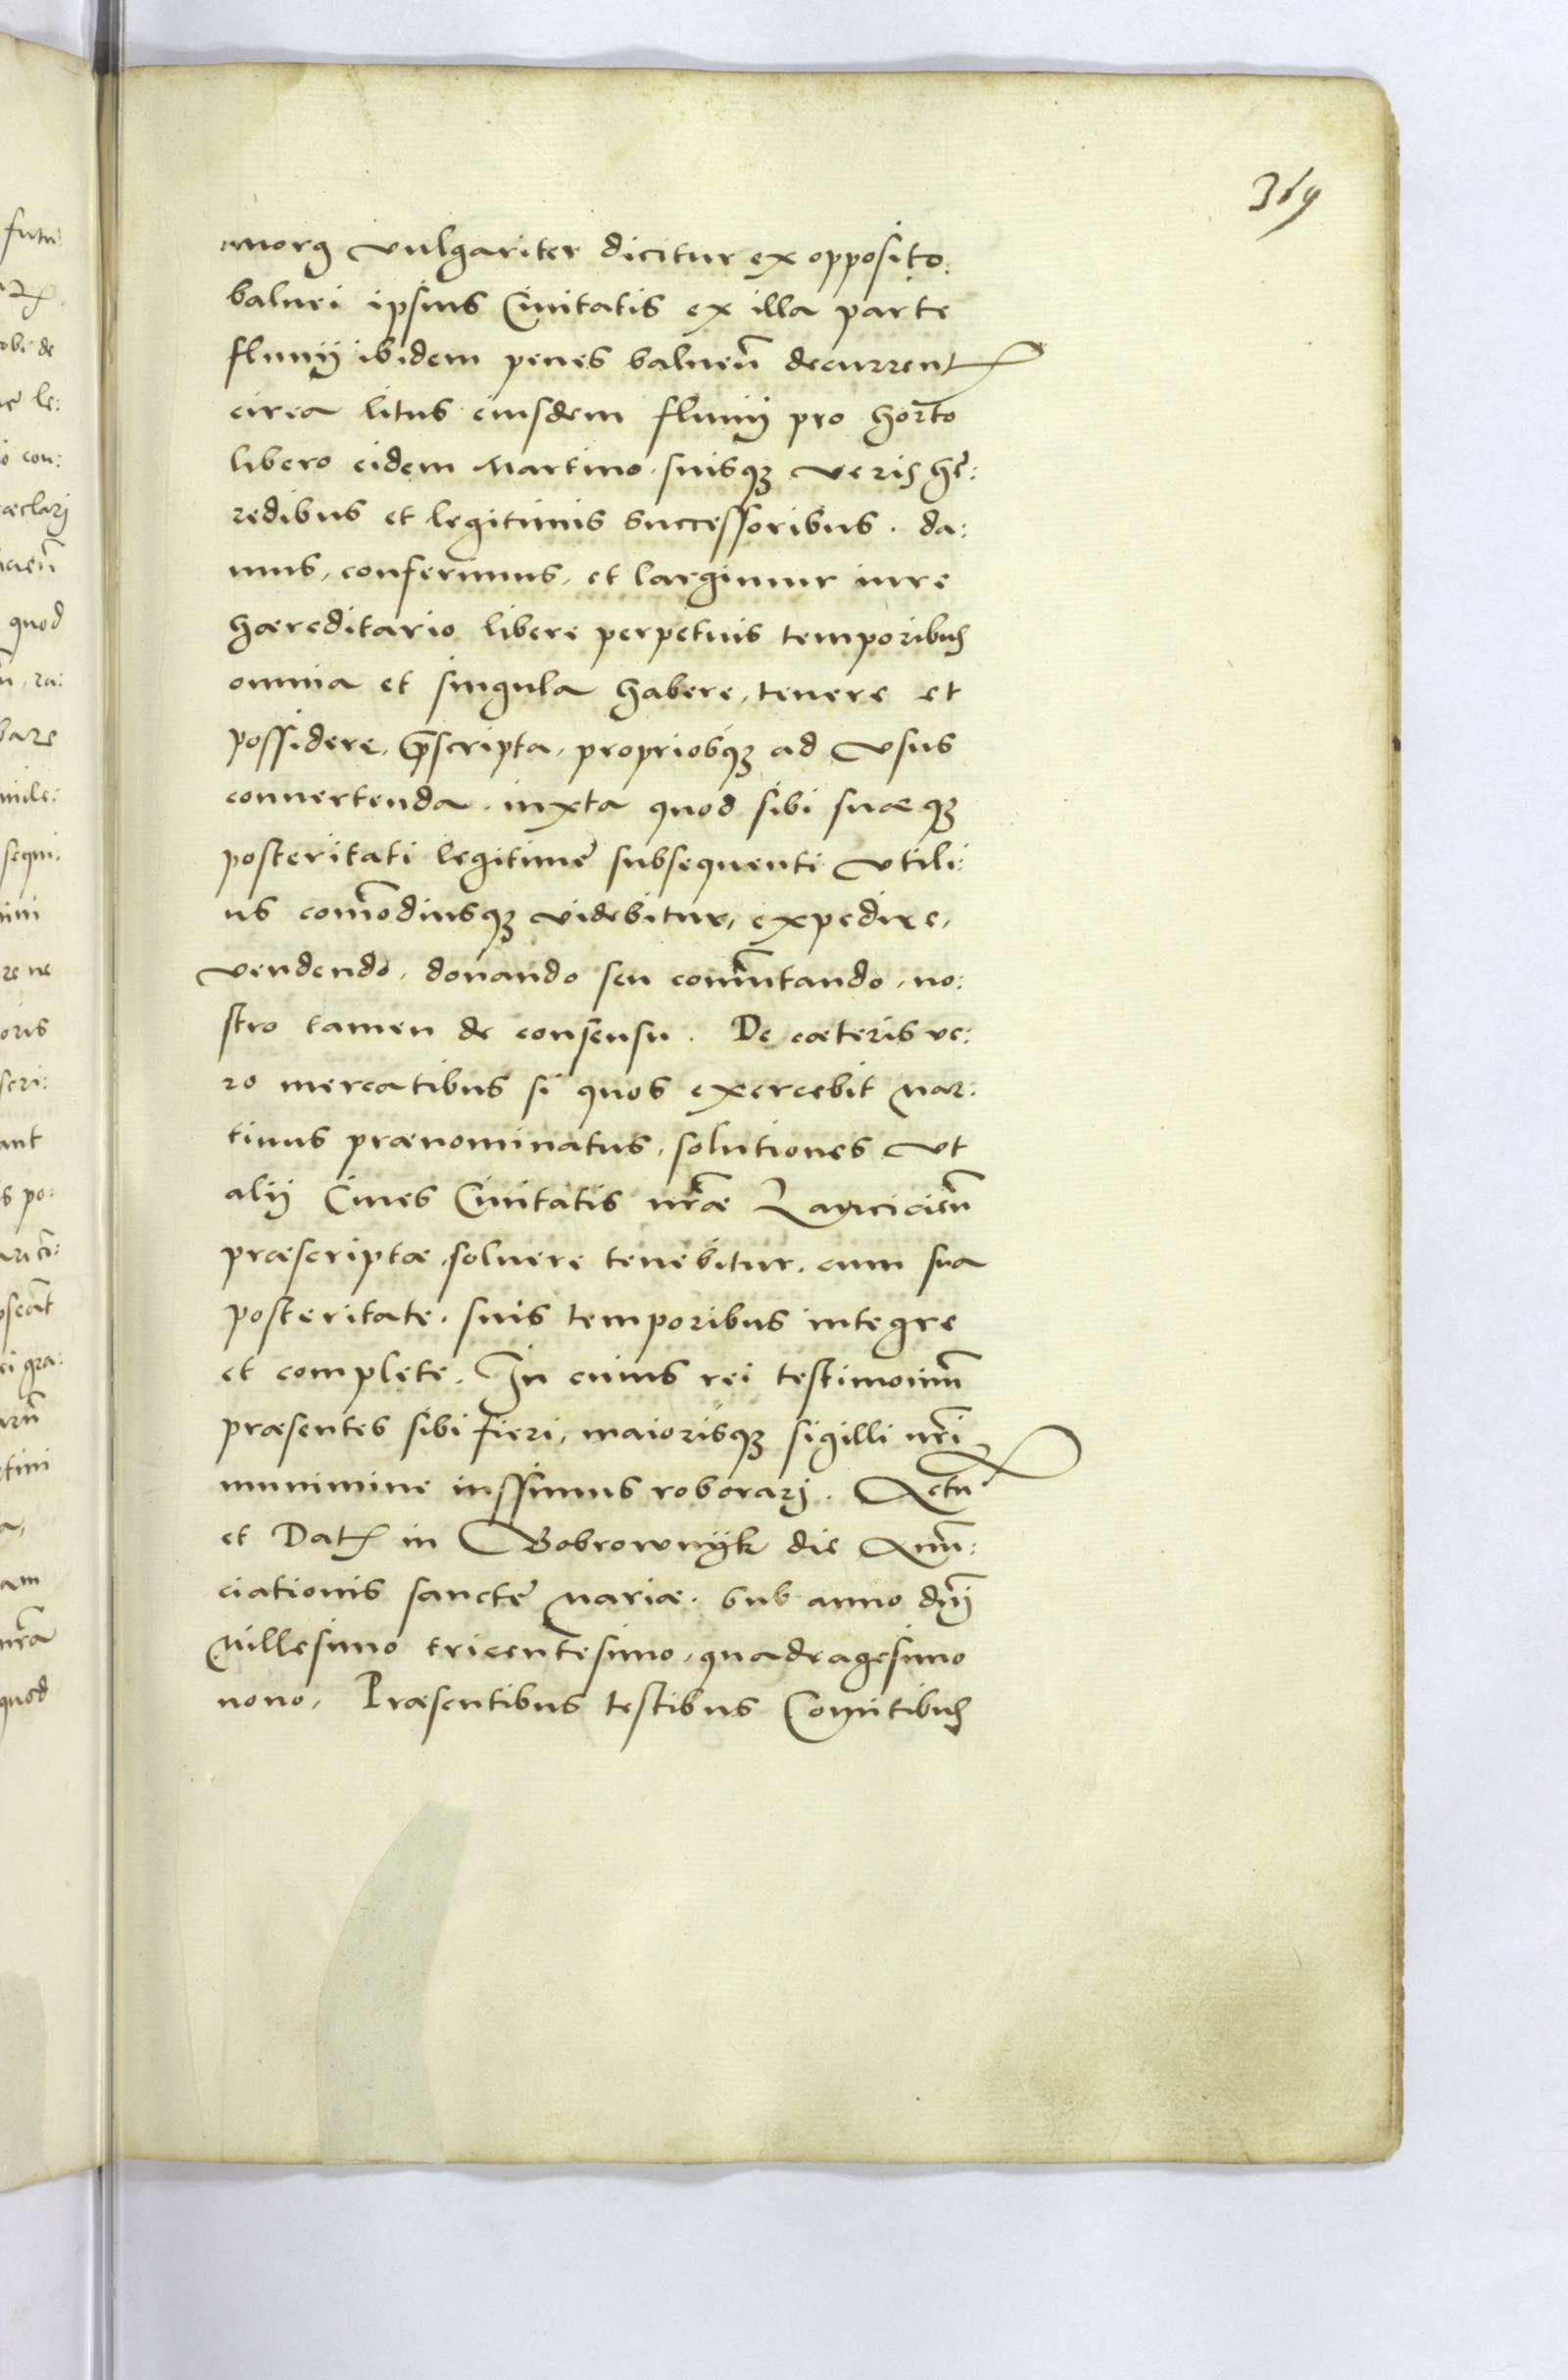 369
morg vulgariter dicitur ex opposito
balnei ipsius Ciuitatis ex illa parte
fluuij ibidem penes balneũ decurrent
circa litus eiusdem fluuij pro horto
libero eidem Martino suisq₃ veris hę:
redibus et legitimis successoribus. da:
mus, conferimus, et largimur iure
hæreditario libere perpetuis temporibus
omnia et singula habere, tenere et
possidere, p̃scripta, propriosq₃ ad vsus
conuertenda. iuxta quod sibi suæq₃
posteritati legitimę subsequenti vtili:
us com̃odiusq₃ videbitur, expedire,
vendendo, donando seu com̃utando, no:
stro tamen de consensu. De cæteris ve:
ro mercatibus si quos exercebit Mar:
tinus prænominatus, solutiones vt
alij Ciues Ciuitatis nr̃æ Lanciciẽn
præscriptæ, soluere tenebitur. cum sua
posteritate. suis temporibus integre
et complete. In cuius rei testimoniũm
præsentes sibi fieri, maiorisq₃ sigilli nr̃i
munimine iussimus roborarj. Actũ
et Dat in Bobrownijk die Anũn:
ciationis sanctę Mariæ. sub anno dñj
Millesimo tricentesimo, quadragesimo
nono. Præsentibus testibus Comitibus
futu:
obi de
le:
con:
æclarj
quod
ra:
bare
mile:
sequi:
re ne
oris
scri:
ant
s po:
ei gra:
tini
am
nr̃a
quod